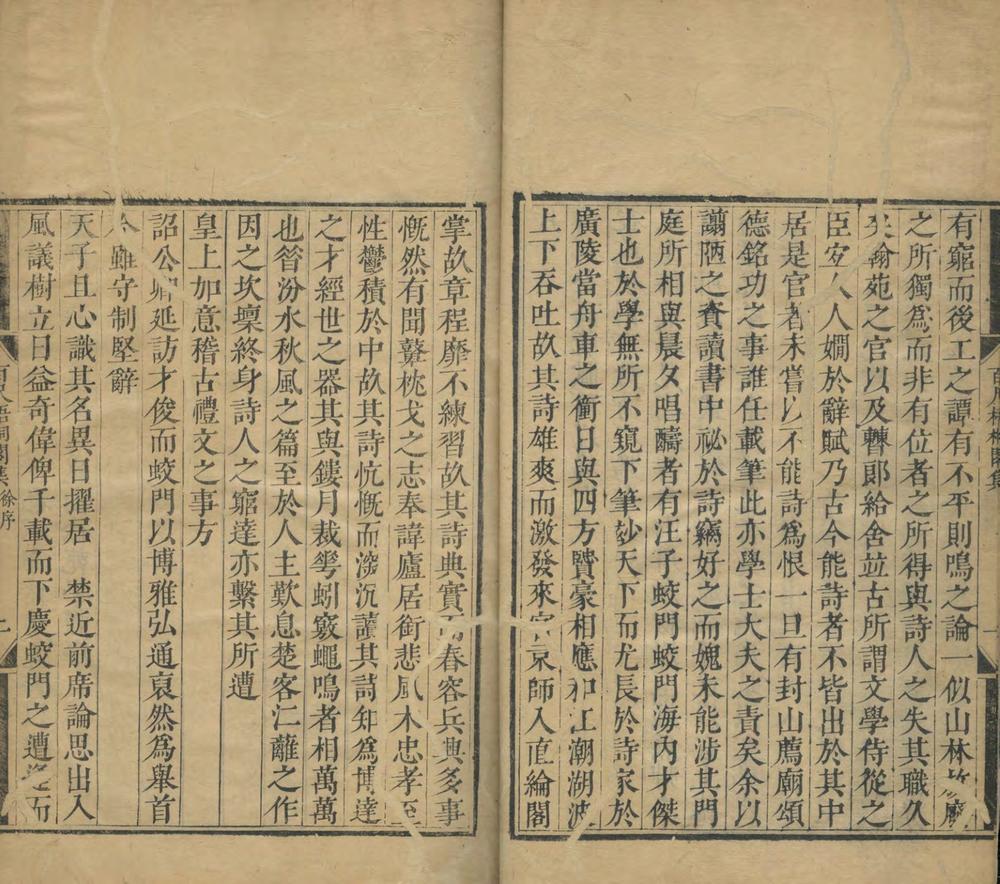 有窮而後工之譚有不平則鳴之論一似山林
之所獨為而非有位者之所得與詩人之失其職久
矣翰苑之官以及轉郎給舍並古所謂文學侍從之
臣安人人嫺於辭賦乃古今能詩者不皆出於其中
居是官者未嘗以不能詩為恨一旦有封山薦廟頌
德銘功之事誰任載筆此亦學士大夫之責矣余以
謭陋之資讀書中祕於詩竊好之而媿未能涉其門
庭所相與晨夕唱酬者有汪子蛟門蛟門海內才傑
士也於學無所不窺下筆妙天下而尤長於詩家於
廣陵當舟車之衝日與四方賢豪相應和江潮湖波
上下吞吐故其詩雄爽而激發來官京師入直綸閣
百尺梧桐閣集
掌故章程靡不練習故其詩典實而舂容兵興多事
慨然有聞鼙枕戈之志奉諱廬居銜悲風木忠孝至
性鬱積於中故其詩忼慨而深沉讀其詩知為博達
之才經世之器其與鏤月裁雩蚓竅蠅鳴者相萬萬
也昔汾水秋風之篇至於人主歎息楚客仳離之作
因之坎壈終身詩人之窮達亦繫其所遭
皇上加意稽古禮文之事方
詔公卿延訪才俊而蛟門以博雅弘通裒然為舉首
今雖守制堅辭
天子且心識其名異日擢居禁近前席論思出入
風議樹立日益奇偉俾千載而下慶蛟門之遭逢而
百尺梧桐閣集
徐序